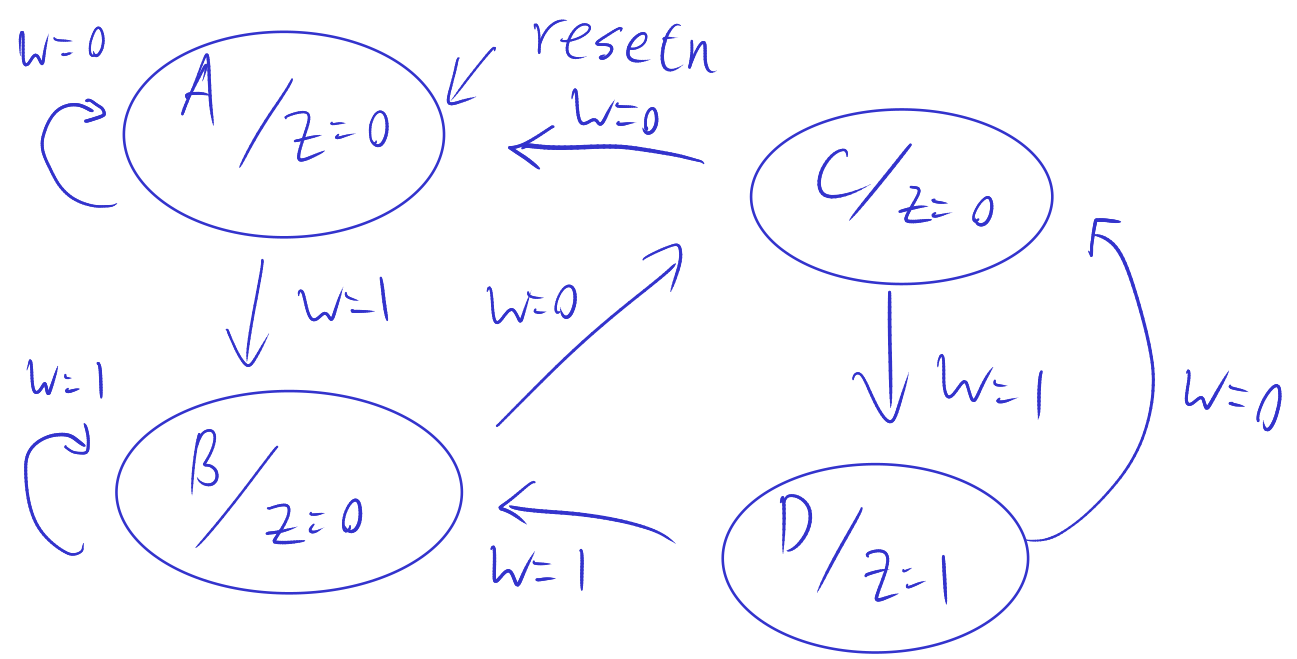 W=0
A/z=0
resetn
W=0
C/z=0
W=1
W=0
W=1
W=0
W=1
B/z=0
W=1
D/z=1